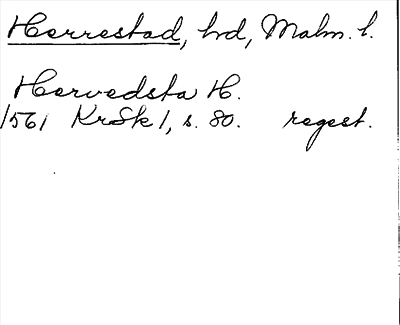 Herrestad, hd, Malm. l.
Hervedsta H.
1561 KrSk 1, s. 80. regest.